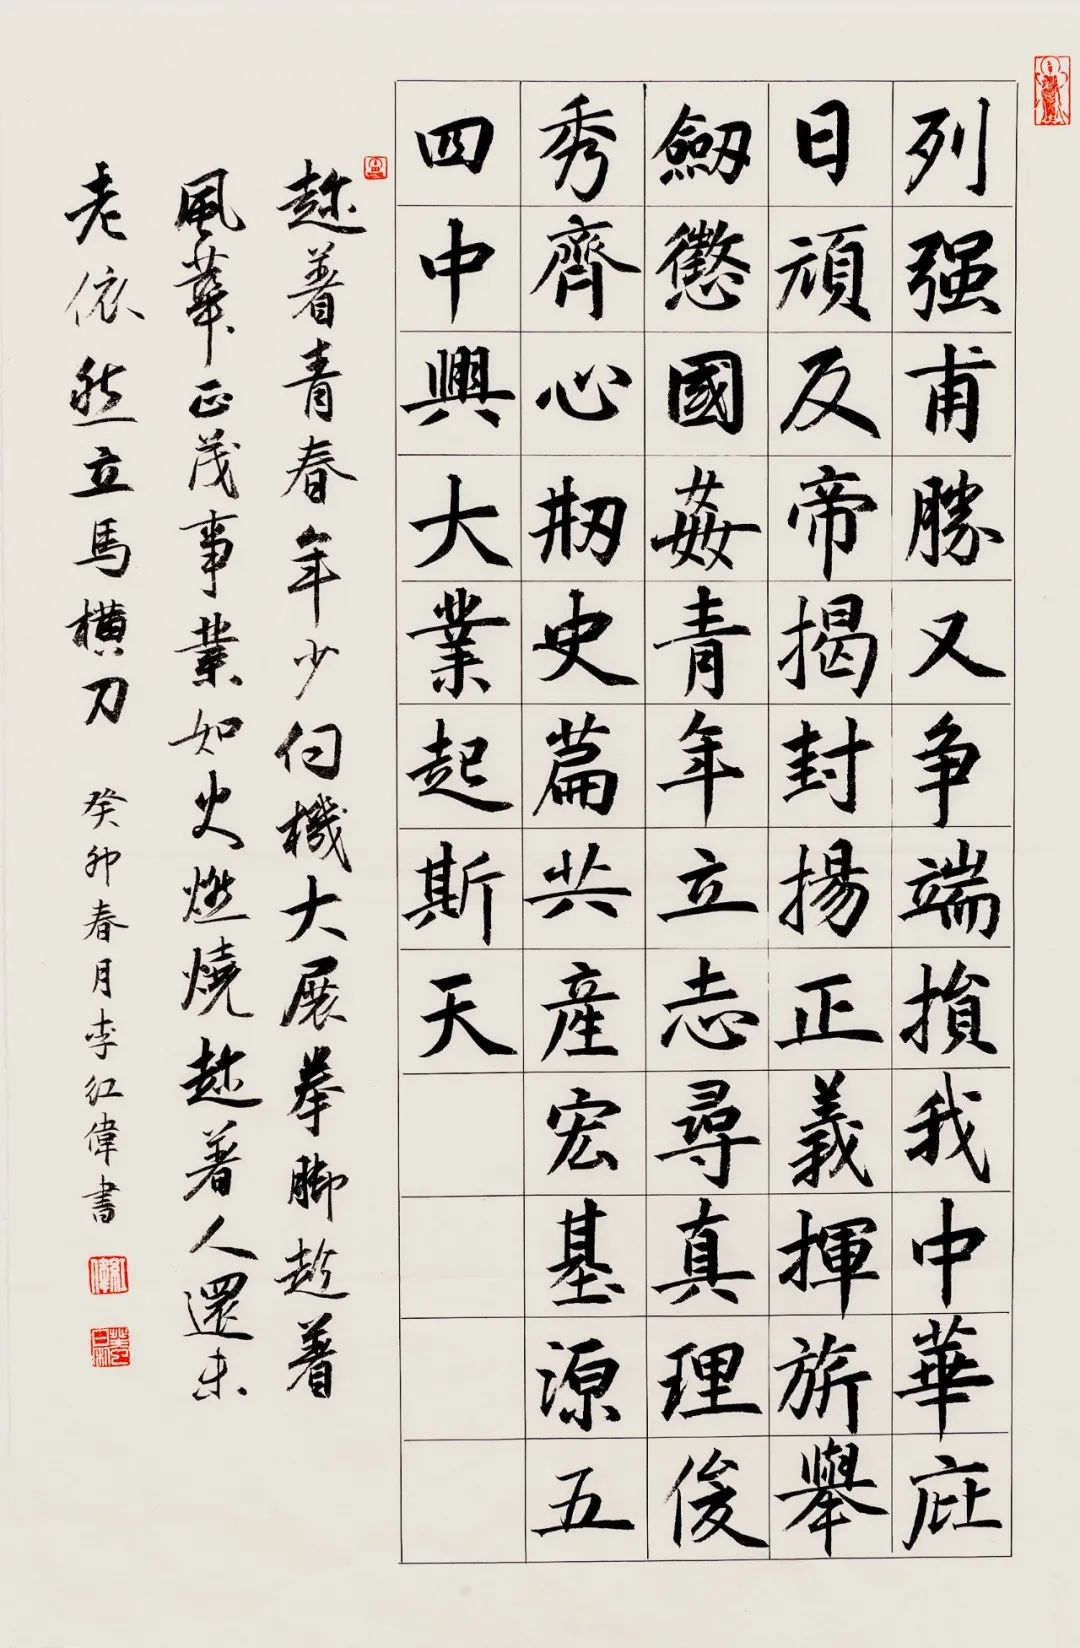 列强甫勝又争端損我中華庇
日頑反帝揭封揚正義揮旂舉
劒懲國姦青年立志尋真理俊
秀齊心刱史篇共産宏基源五
四中興大業起斯天
趁着青春年少伺機大展拳脚趁着
風華正茂事業如火燃燒趁着人還未
老依然立馬橫刀
癸卯春月李红偉書